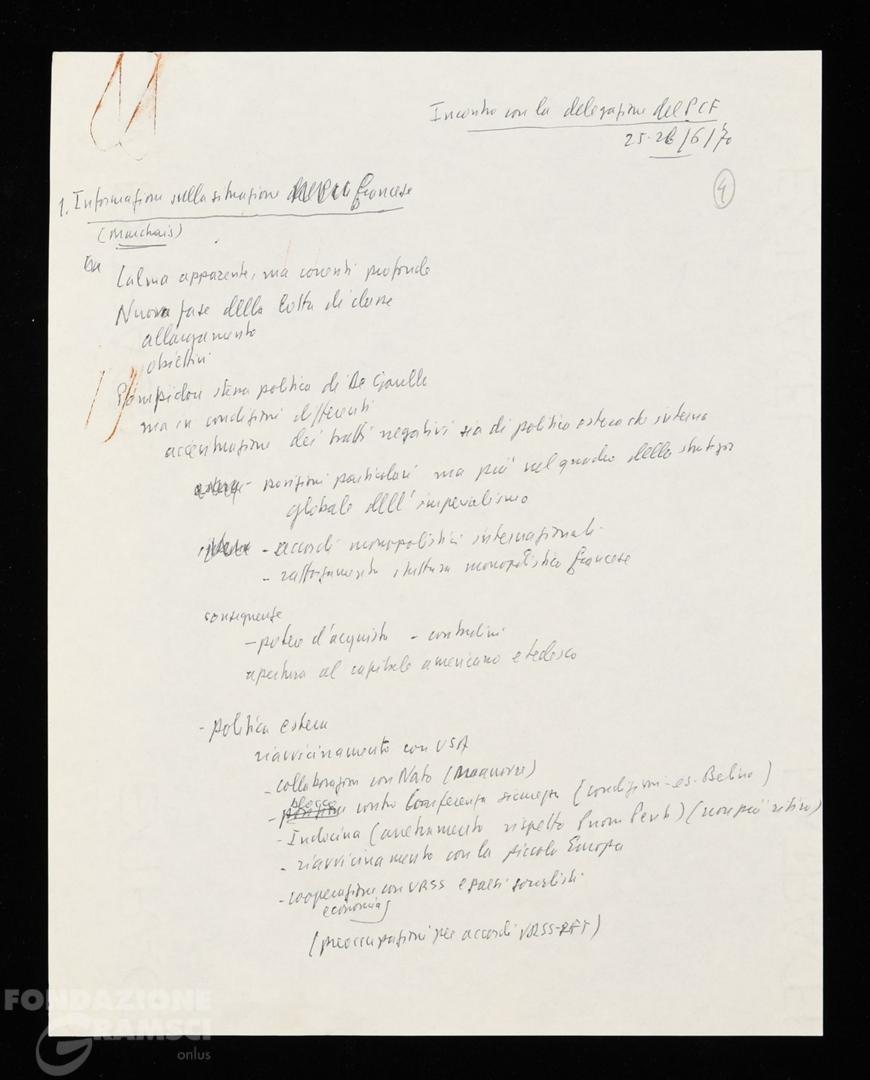 Incontro con la delegazione del PCF
25-26/6/70
4
1. Informazione sulla situazione francese
(Marchais)
Calma apparente, ma correnti profonde
Nuova fase della lotta di classe
allargamento
obiettivi
Pompidou stessa politica di De Gaulle
ma in condizioni differenti
accentuazione dei tratti negativi sia di politica estera che interna
estera - posizioni particolari ma più nel quadro della strategia
globale dell'imperialismo
interna - accordi monopolistici internazionali
- rafforzamento struttura monopolistica francese
conseguenze
- potere d'acquisto - contadini
apertura al capitale americano e tedesco
- Politica estera
riavvicinamento con USA
- collaborazione con Nato (manovre)
- blocco contro Conferenza sicurezza (condizioni - es. Berlino)
- Indocina (arretramento rispetto Pnom Penh) (non più ritiro)
- riavvicinamento con la piccola Europa
- cooperazione con URSS e paesi socialisti
economica
(preoccupazioni per accordi URSS-RFT)
FONDAZIONE
GRAMSCI
onlus